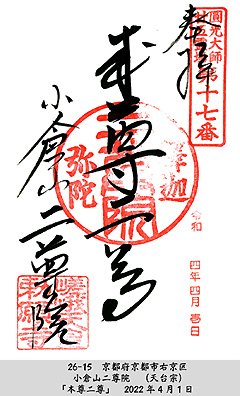 奉拝
圓光大師
十七番
本尊二尊
釋迦
弥陀
小倉山二尊院
令和 四年四月壱日
26-15 京都府京都市右京区
小倉山二尊院 (天台宗)
「本尊二尊」 2022年4月1日